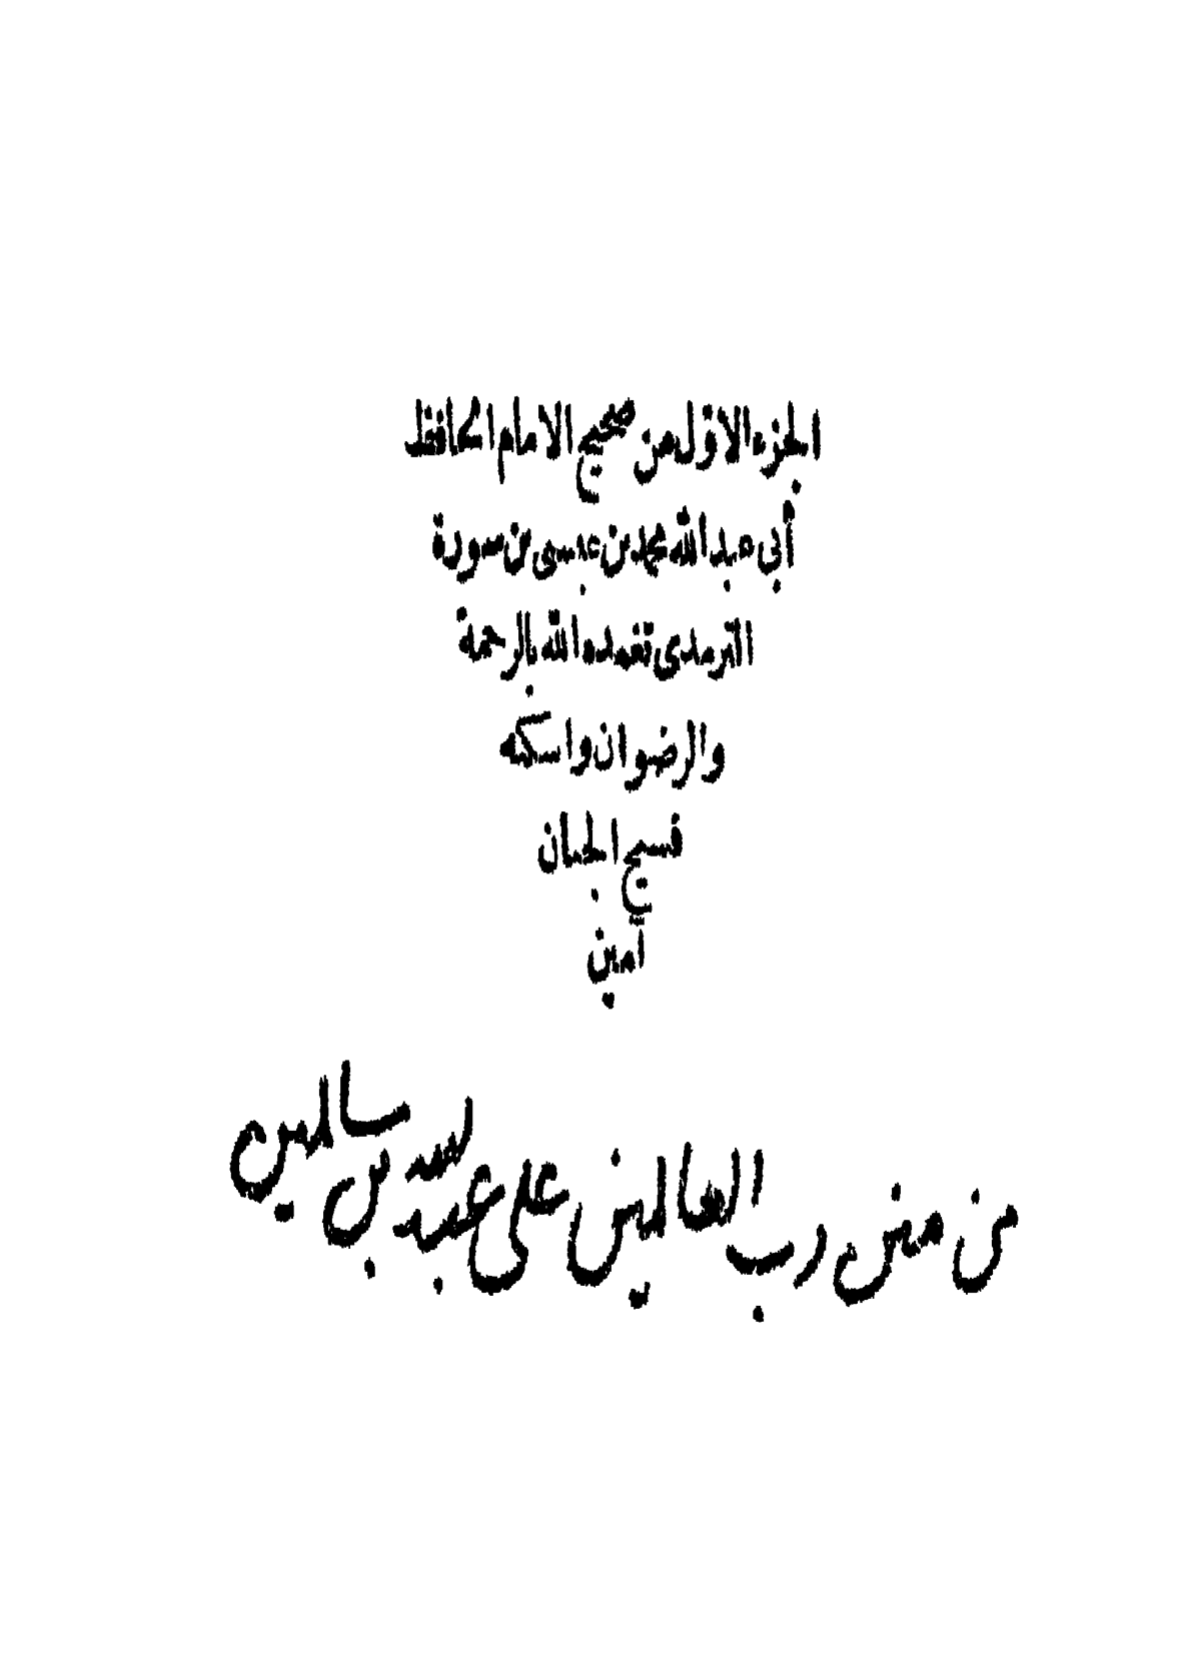 الجزء الاوّل من صحيح الامام الحافظ
أبى عبد الله محمد بن عيسى بن سورة
الترمدى تغمده الله بالرحمة
والرضوان واسكنه
فسيح الجنان
آمين
من منن رب العالمين على عبد الله بن سالمين